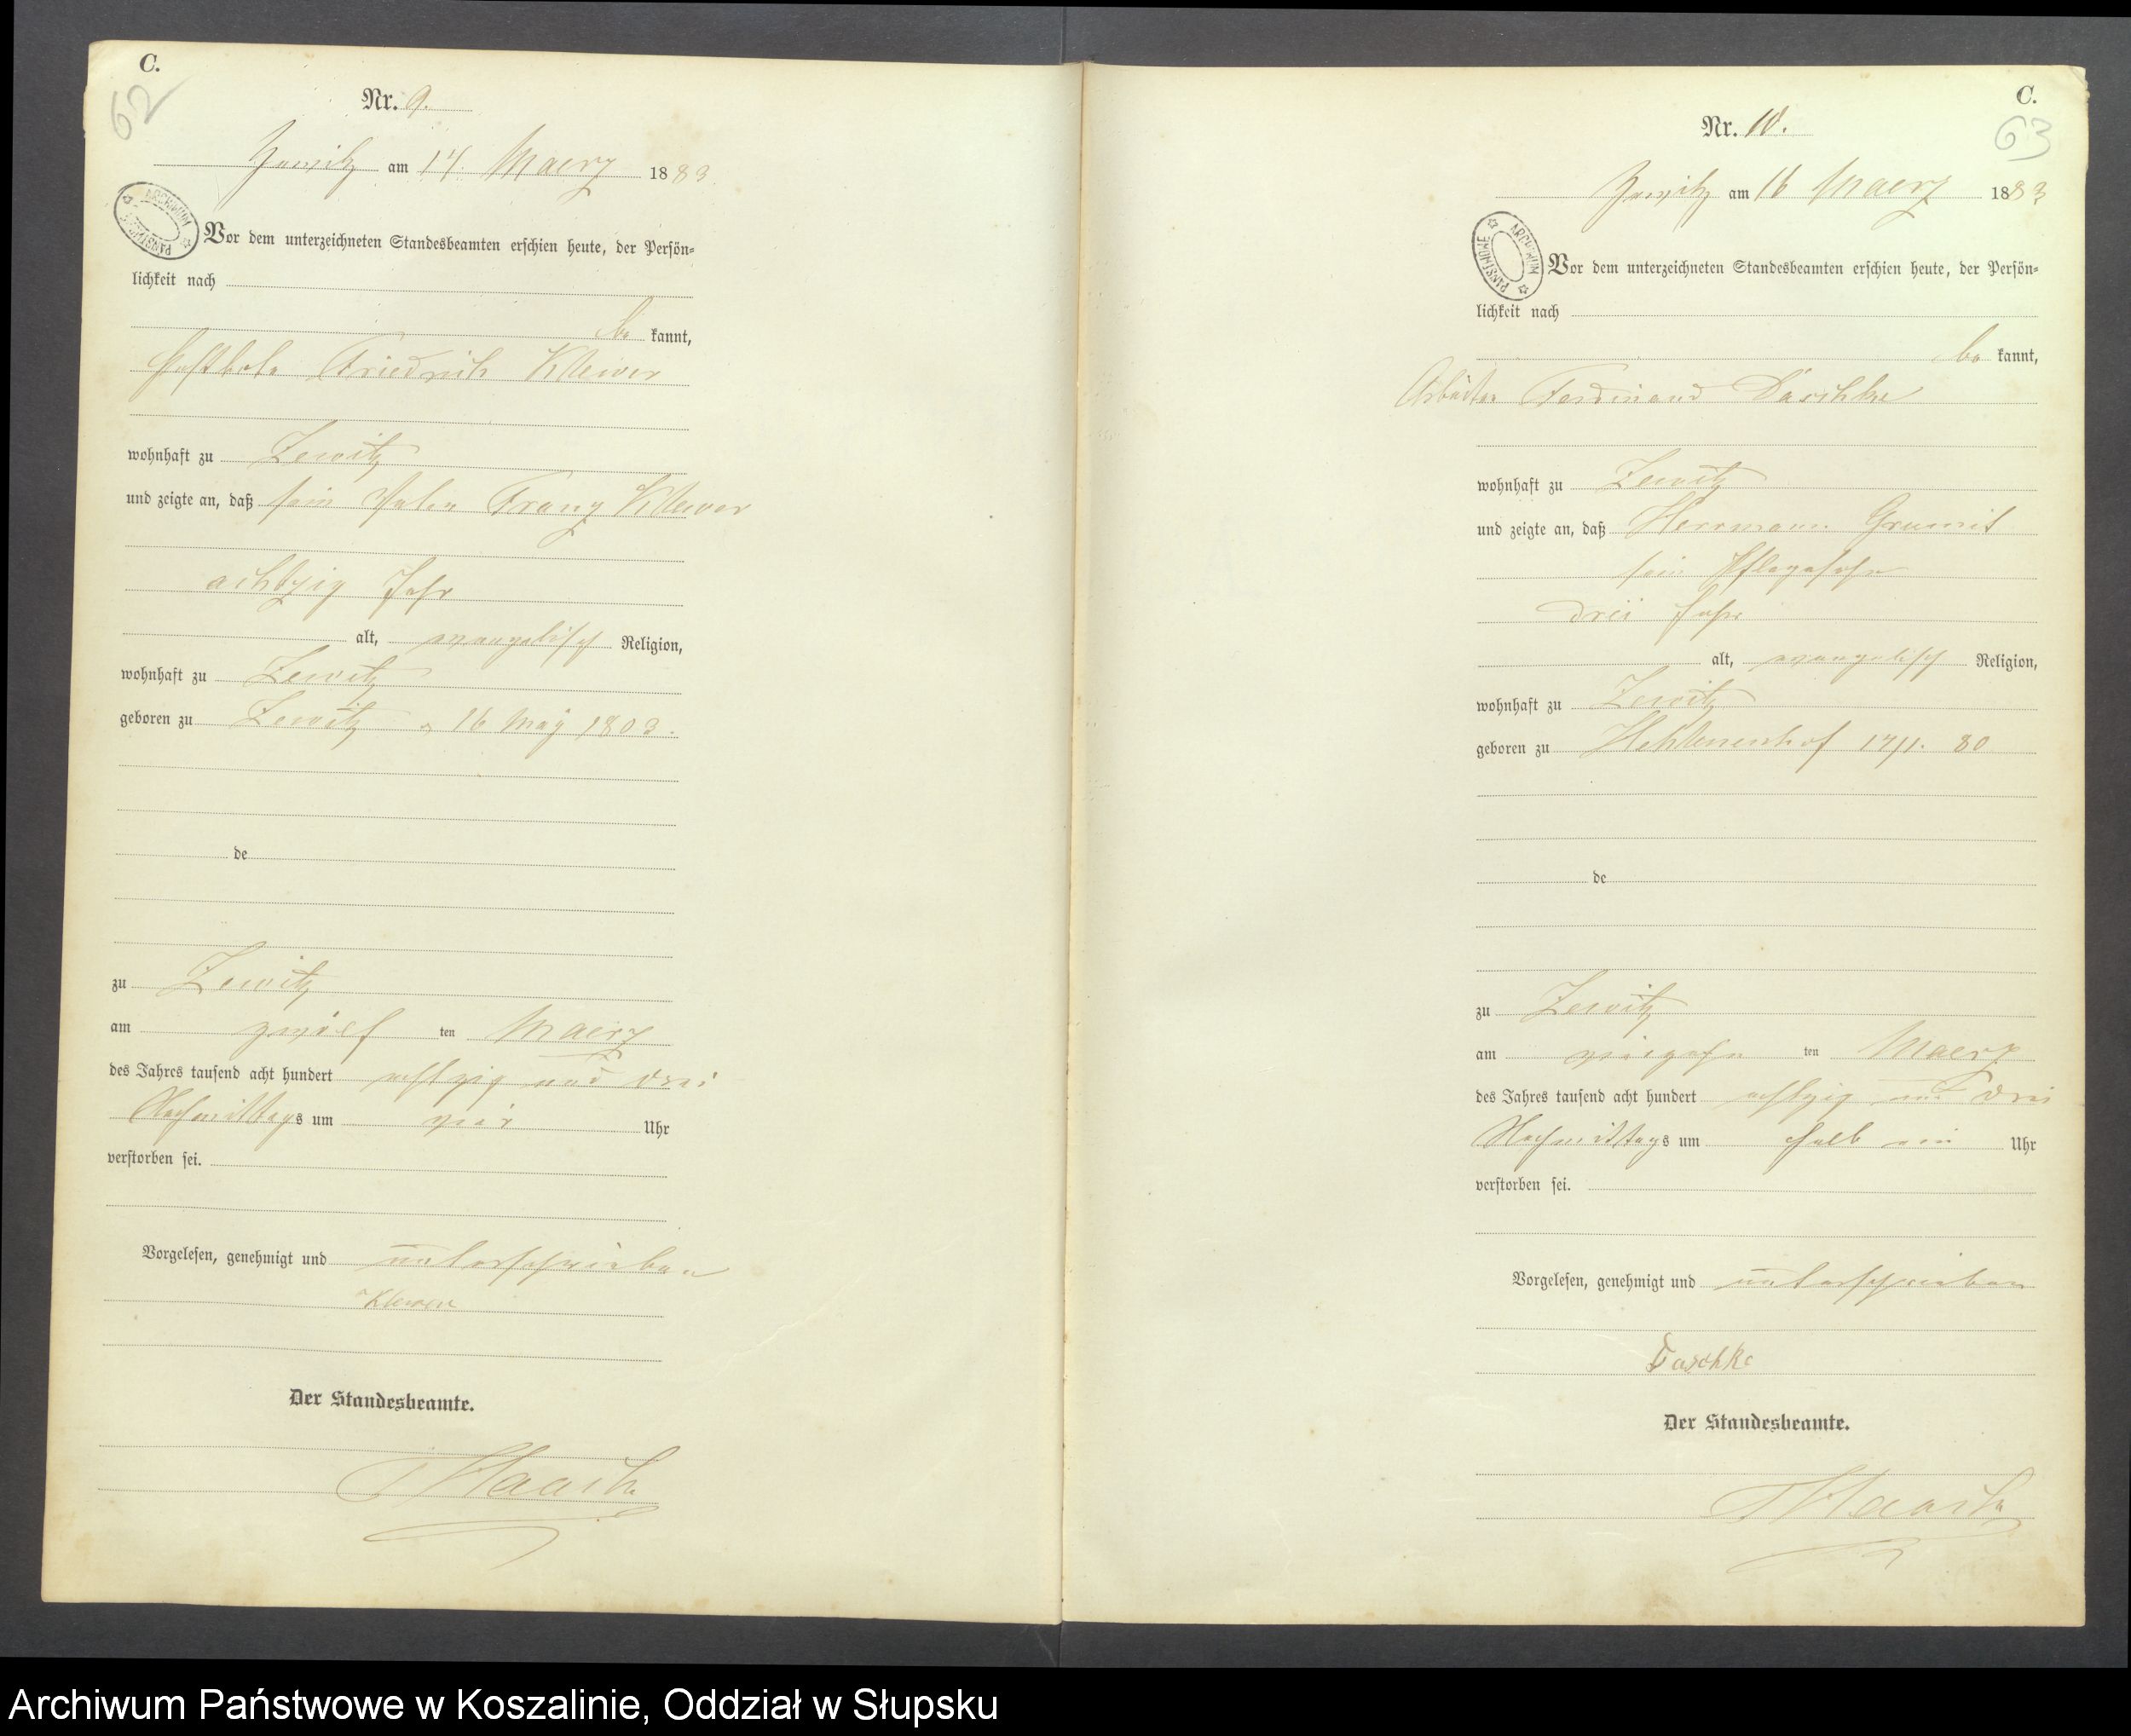 C.
62
Nr. 9.
Zewitz am 14. Maerz 1883.
ARCHIWUM PAŃSTWOWE
Vor dem unterzeichneten Standesbeamten erschien heute, der Persön-
lichkeit nach
be kannt,
Friedrich Klewer
wohnhaft zu Zewitz
und zeigte an, daß sein Vater Franz Klewer
achtzig Jahr
alt, evangelisch Religion,
wohnhaft zu Zewitz
geboren zu Zewitz 16 May 1803.
de
zu Zewitz
am zwölf ten Maerz
des Jahres tausend acht hundert achtzig und drei
Nachmittags um vier Uhr
verstorben sei.
Vorgelesen, genehmigt und unterschrieben
Klewer
Der Standesbeamte.
C.
63
Nr. 10.
Zewitz am 16 Maerz 1883
ARCHIWUM PAŃSTWOWE
Vor dem unterzeichneten Standesbeamten erschien heute, der Persön-
lichkeit nach
be kannt,
Arbeiter Ferdinand Daschke
wohnhaft zu Zewitz
und zeigte an, daß Herrmann
sein Pflegesohn
drei Jahr
alt, evangelisch Religion,
wohnhaft zu Zewitz
geboren zu 80
de
zu Zewitz
am vierzehn ten Maerz
des Jahres tausend acht hundert achtzig und drei
Nachmittags um halb ein Uhr
verstorben sei.
Vorgelesen, genehmigt und unterschrieben
Daschke
Der Standesbeamte.
Archiwum Państwowe w Koszalinie, Oddział w Słupsku